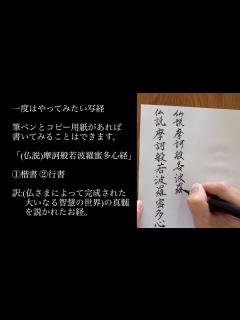 一度はやってみたい写経
筆ペンとコピー用紙があれば
書いてみることはできます。
「(仏説)摩訶般若波羅蜜多心経」
①楷書 ②行書
訳:(仏さまによって完成された
大いなる智慧の世界)の真髄
を説かれたお経。
仏説摩訶般若波羅
仏説摩訶般若波羅蜜多心